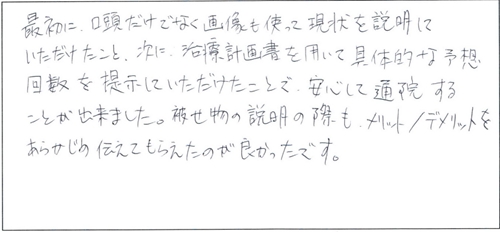 最初に、口頭だけでなく画像も使って現状を説明して
いただけたこと、次に、治療計画書を用いて具体的な予想
回数を提示していただけたことで、安心して通院する
ことが出来ました。被せ物の説明の際も、メリット/デメリットを
あらかじめ伝えてもらえたのが良かったです。